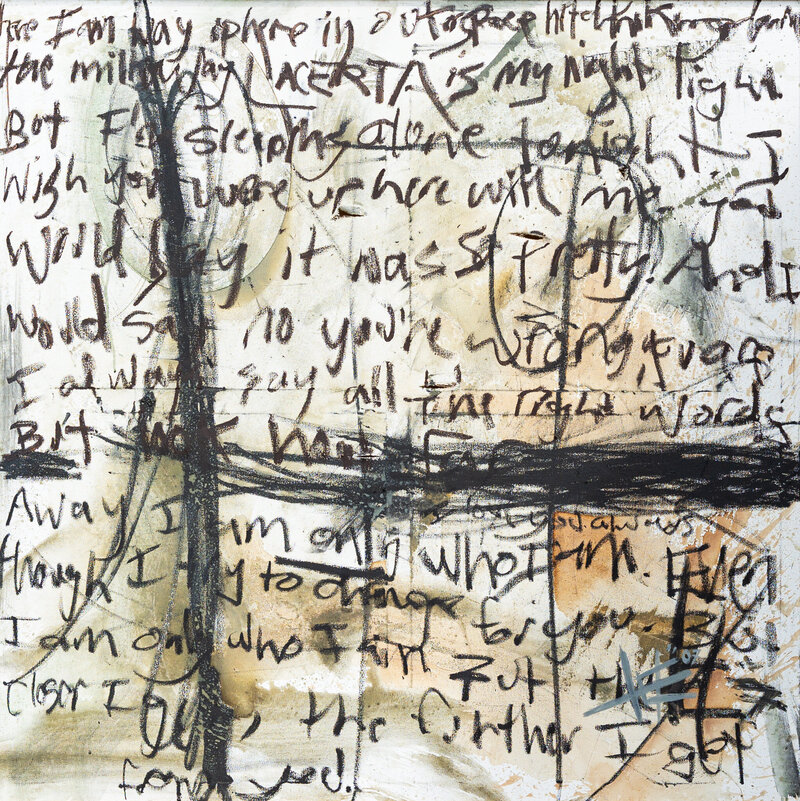 here I am way up here in outer space hitchhiking
the milkyway LACERTA is my night light
But I'm sleeping alone tonight I
Wish you were up here with me you
Would say it was so Pretty. And I
Would say no you're wrong
I always say all the right words
But look how Far
I love you always
Away I am only who I am. Even
though I try to change for you.
I am only who I am But the
closer I get, the further I get
from you.